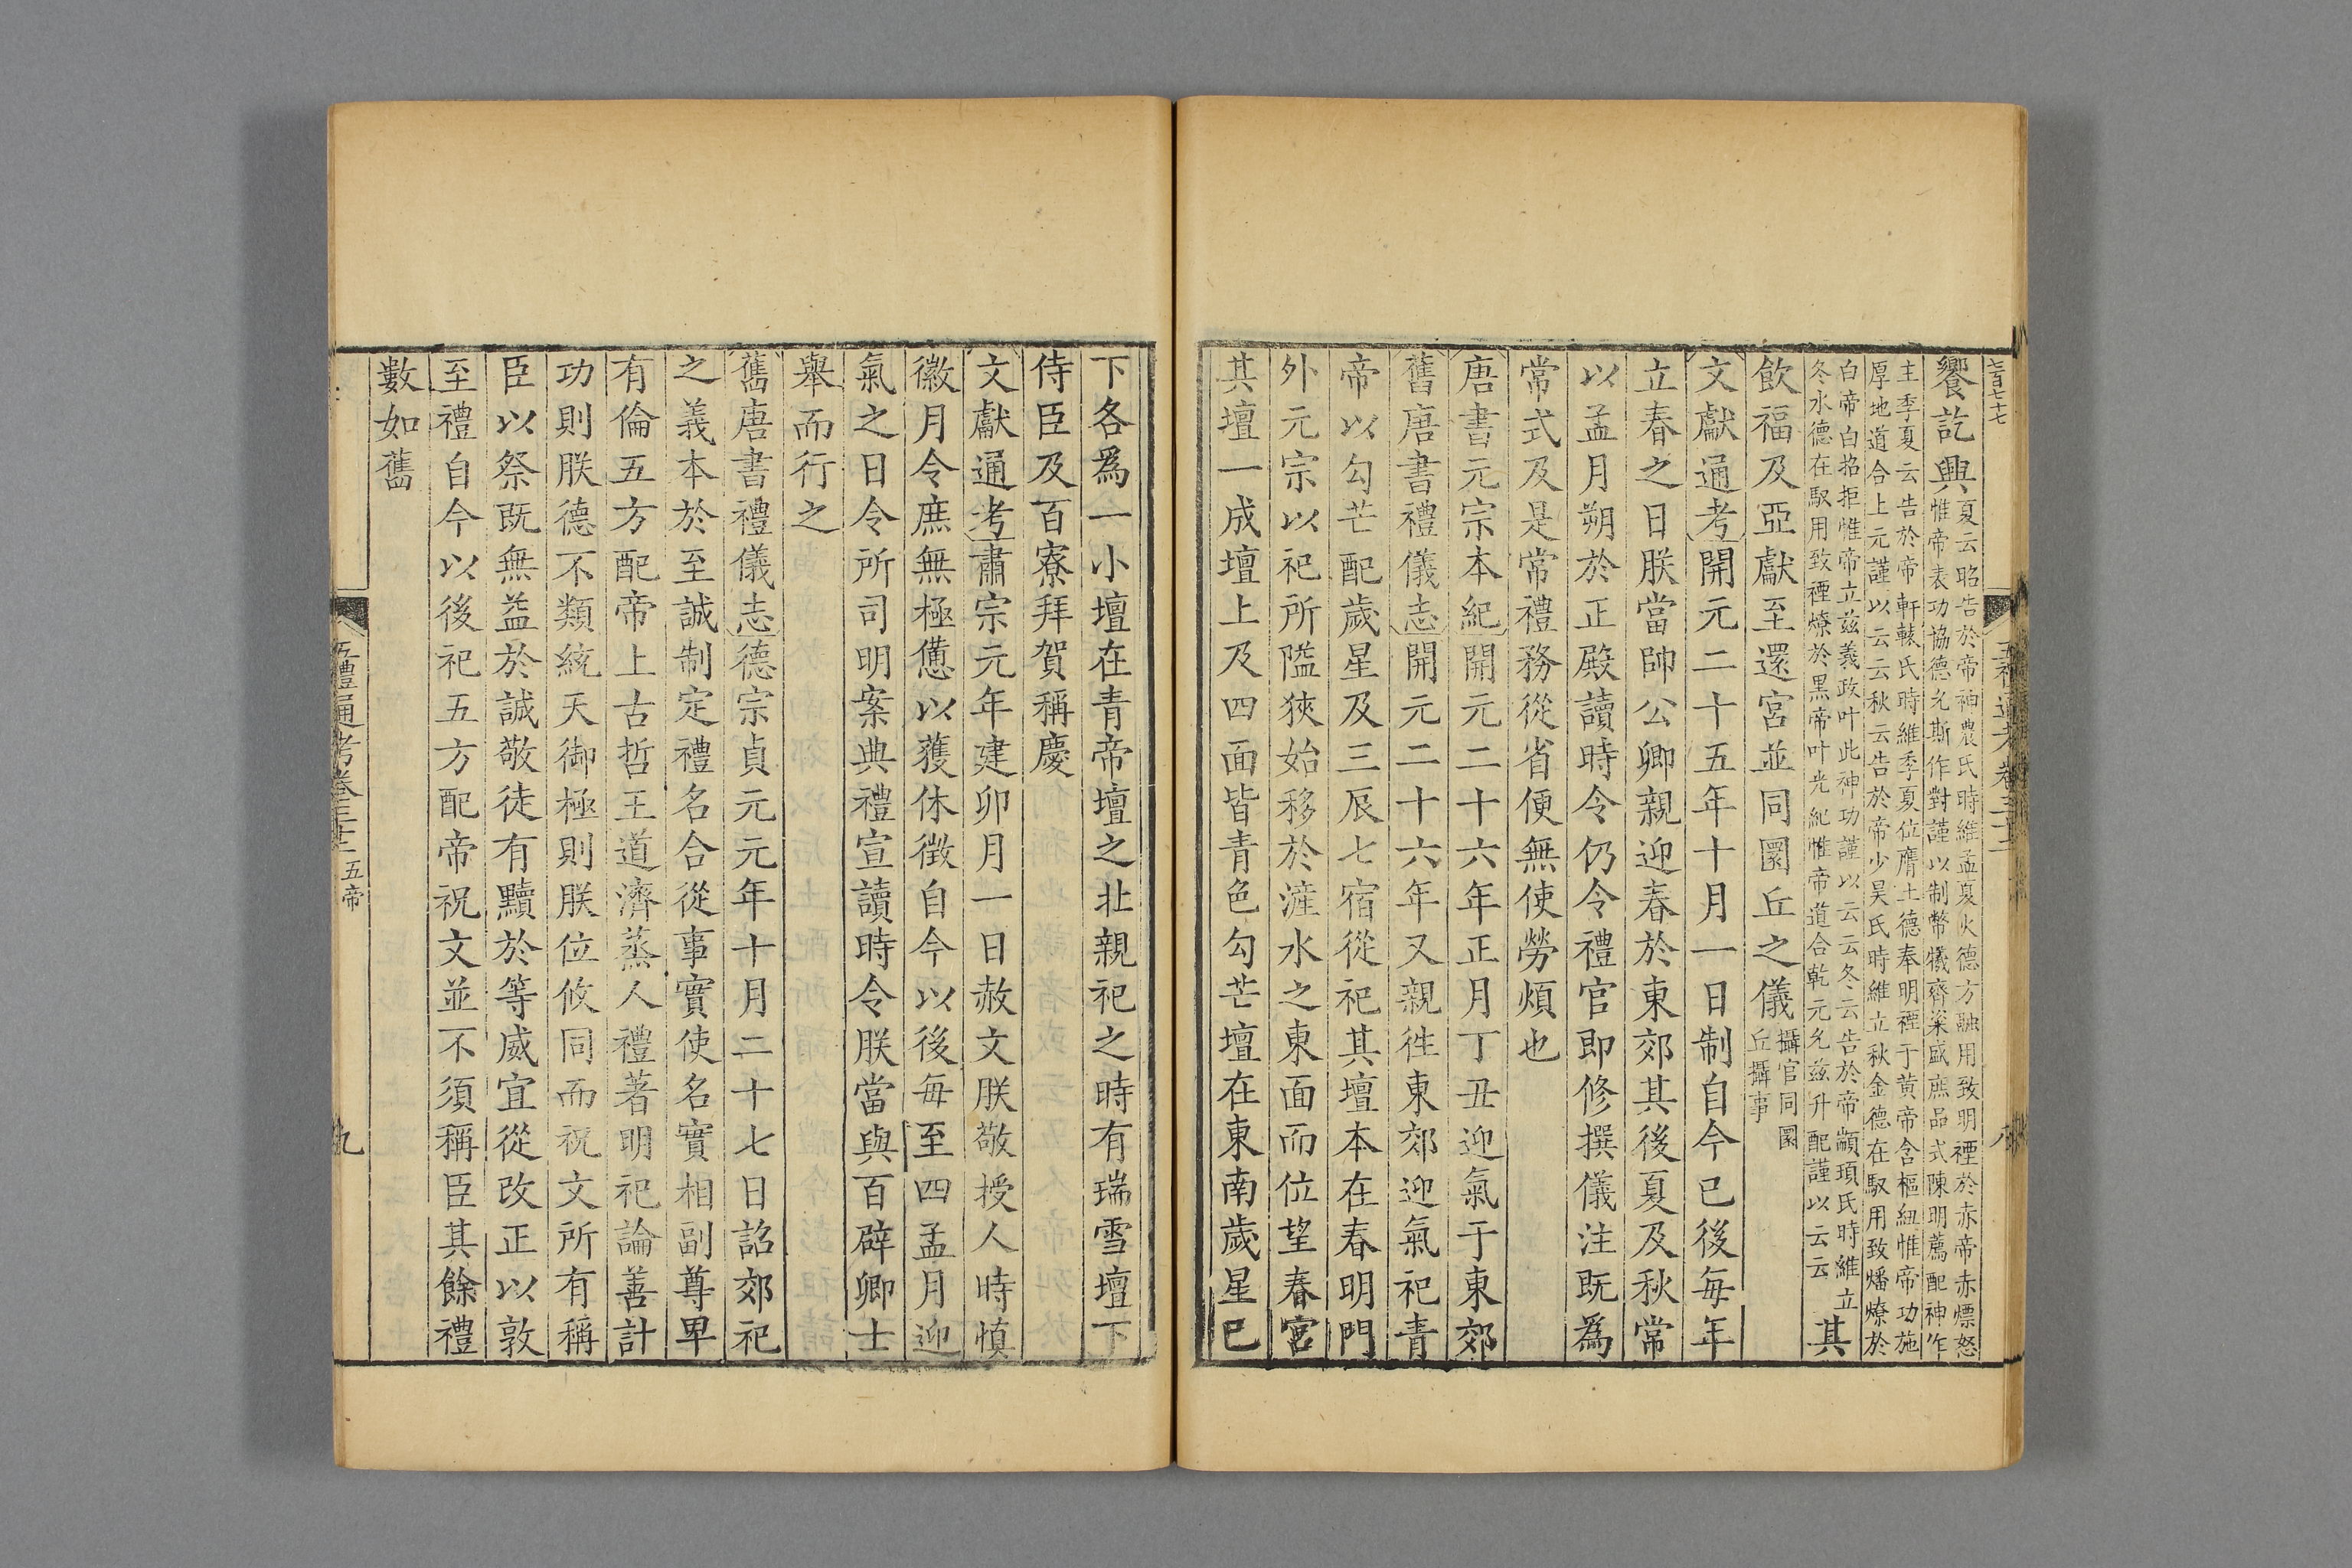 七百七十七
饗訖興
夏云昭告於帝神農氏時維孟夏火德方融用致明禋於赤帝赤熛怒
惟帝表功協德允斯作對謹以制幣犧齊粢盛庶品式陳明薦配神作
主季夏云告於帝軒轅氏時維季夏位膺土德奉明禋于黃帝含樞紐惟帝功施
厚地道合上元謹以云云秋云告於帝少昊氏時維立秋金德在馭用致燔燎於
白帝白招拒惟帝立兹義政叶此神功謹以云云冬云告於帝顓頊氏時維立
冬水德在馭用致禋燎於黑帝叶光紀惟帝道合乾元允兹升配謹以云云
其
飲福及亞獻至還宮並同圜丘之儀
攝官同圜
丘攝事
文獻通考開元二十五年十月一日制自今已後每年
立春之日朕當帥公卿親迎春於東郊其後夏及秋常
以孟月朔於正殿讀時令仍令禮官即修撰儀注既爲
常式及是常禮務從省便無使勞煩也
唐書元宗本紀開元二十六年正月丁丑迎氣于東郊
舊唐書禮儀志開元二十六年又親往東郊迎氣祀青
帝以勾芒配歲星及三辰七宿從祀其壇本在春明門
外元宗以祀所隘狹始移於滻水之東面而位望春宮
其壇一成壇上及四面皆青色勾芒壇在東南歲星已
下各爲一小壇在青帝壇之北親祀之時有瑞雪壇下
侍臣及百寮拜賀稱慶
文獻通考肅宗元年建卯月一日赦文朕敬授人時慎
徽月令庶無極備以獲休徵自今以後每至四孟月迎
氣之日令所司明案典禮宣讀時令朕當與百辟卿士
舉而行之
舊唐書禮儀志德宗貞元元年十月二十七日詔郊祀
之義本於至誠制定禮名合從事實使名實相副尊卑
有倫五方配帝上古哲王道濟蒸人禮著明祀論善計
功則朕德不類統天御極則朕位攸同而祝文所有稱
臣以祭既無益於誠敬徒有黷於等威宜從改正以敦
至禮自今以後祀五方配帝祝文並不須稱臣其餘禮
數如舊
五禮通考卷
五帝
九